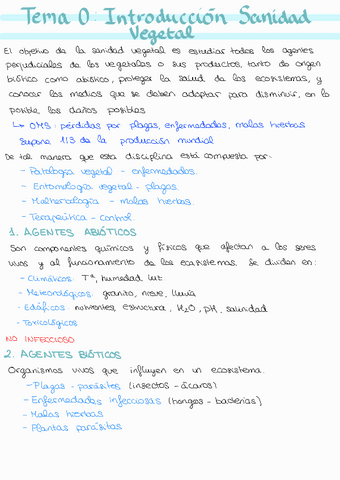 Tema 0: Introducción Sanidad
Vegetal
El objetivo de la sanidad vegetal es estudiar todos los agentes
perjudiciales de los vegetales o sus productos, tanto de origen
biótico como abiótico, proteger la salud de los ecosistemas, y
conocer los medios que se deben adoptar para disminuir, en lo
posible, los daños posibles
↳ OMS: pérdidas por plagas, enfermedades, malas hierbas
supone 1/3 de la producción mundial
De tal manera que esta disciplina está compuesta por:
- Patología vegetal - enfermedades.
- Entomología vegetal - plagas.
- Malherbología - malas hierbas.
- Terapeútica - control
1. AGENTES ABIÓTICOS
Son componentes químicos y físicos que afectan a los seres
vivos y al funcionamiento de los ecosistemas. Se dividen en:
- Climáticos: Tª, humedad, luz
- Meteorológicos: granito, nieve, lluvia
- Edáficos: nutrientes, estructura, H2O, pH, salinidad
- Toxicológicos
NO INFECCIOSO
2. AGENTES BIÓTICOS
Organismos vivos que influyen en un ecosistema.
- Plagas - parásitos (insectos - ácaros)
- Enfermedades infecciosas (hongos - bacterias)
- Malas hierbas
- Plantas parásitas